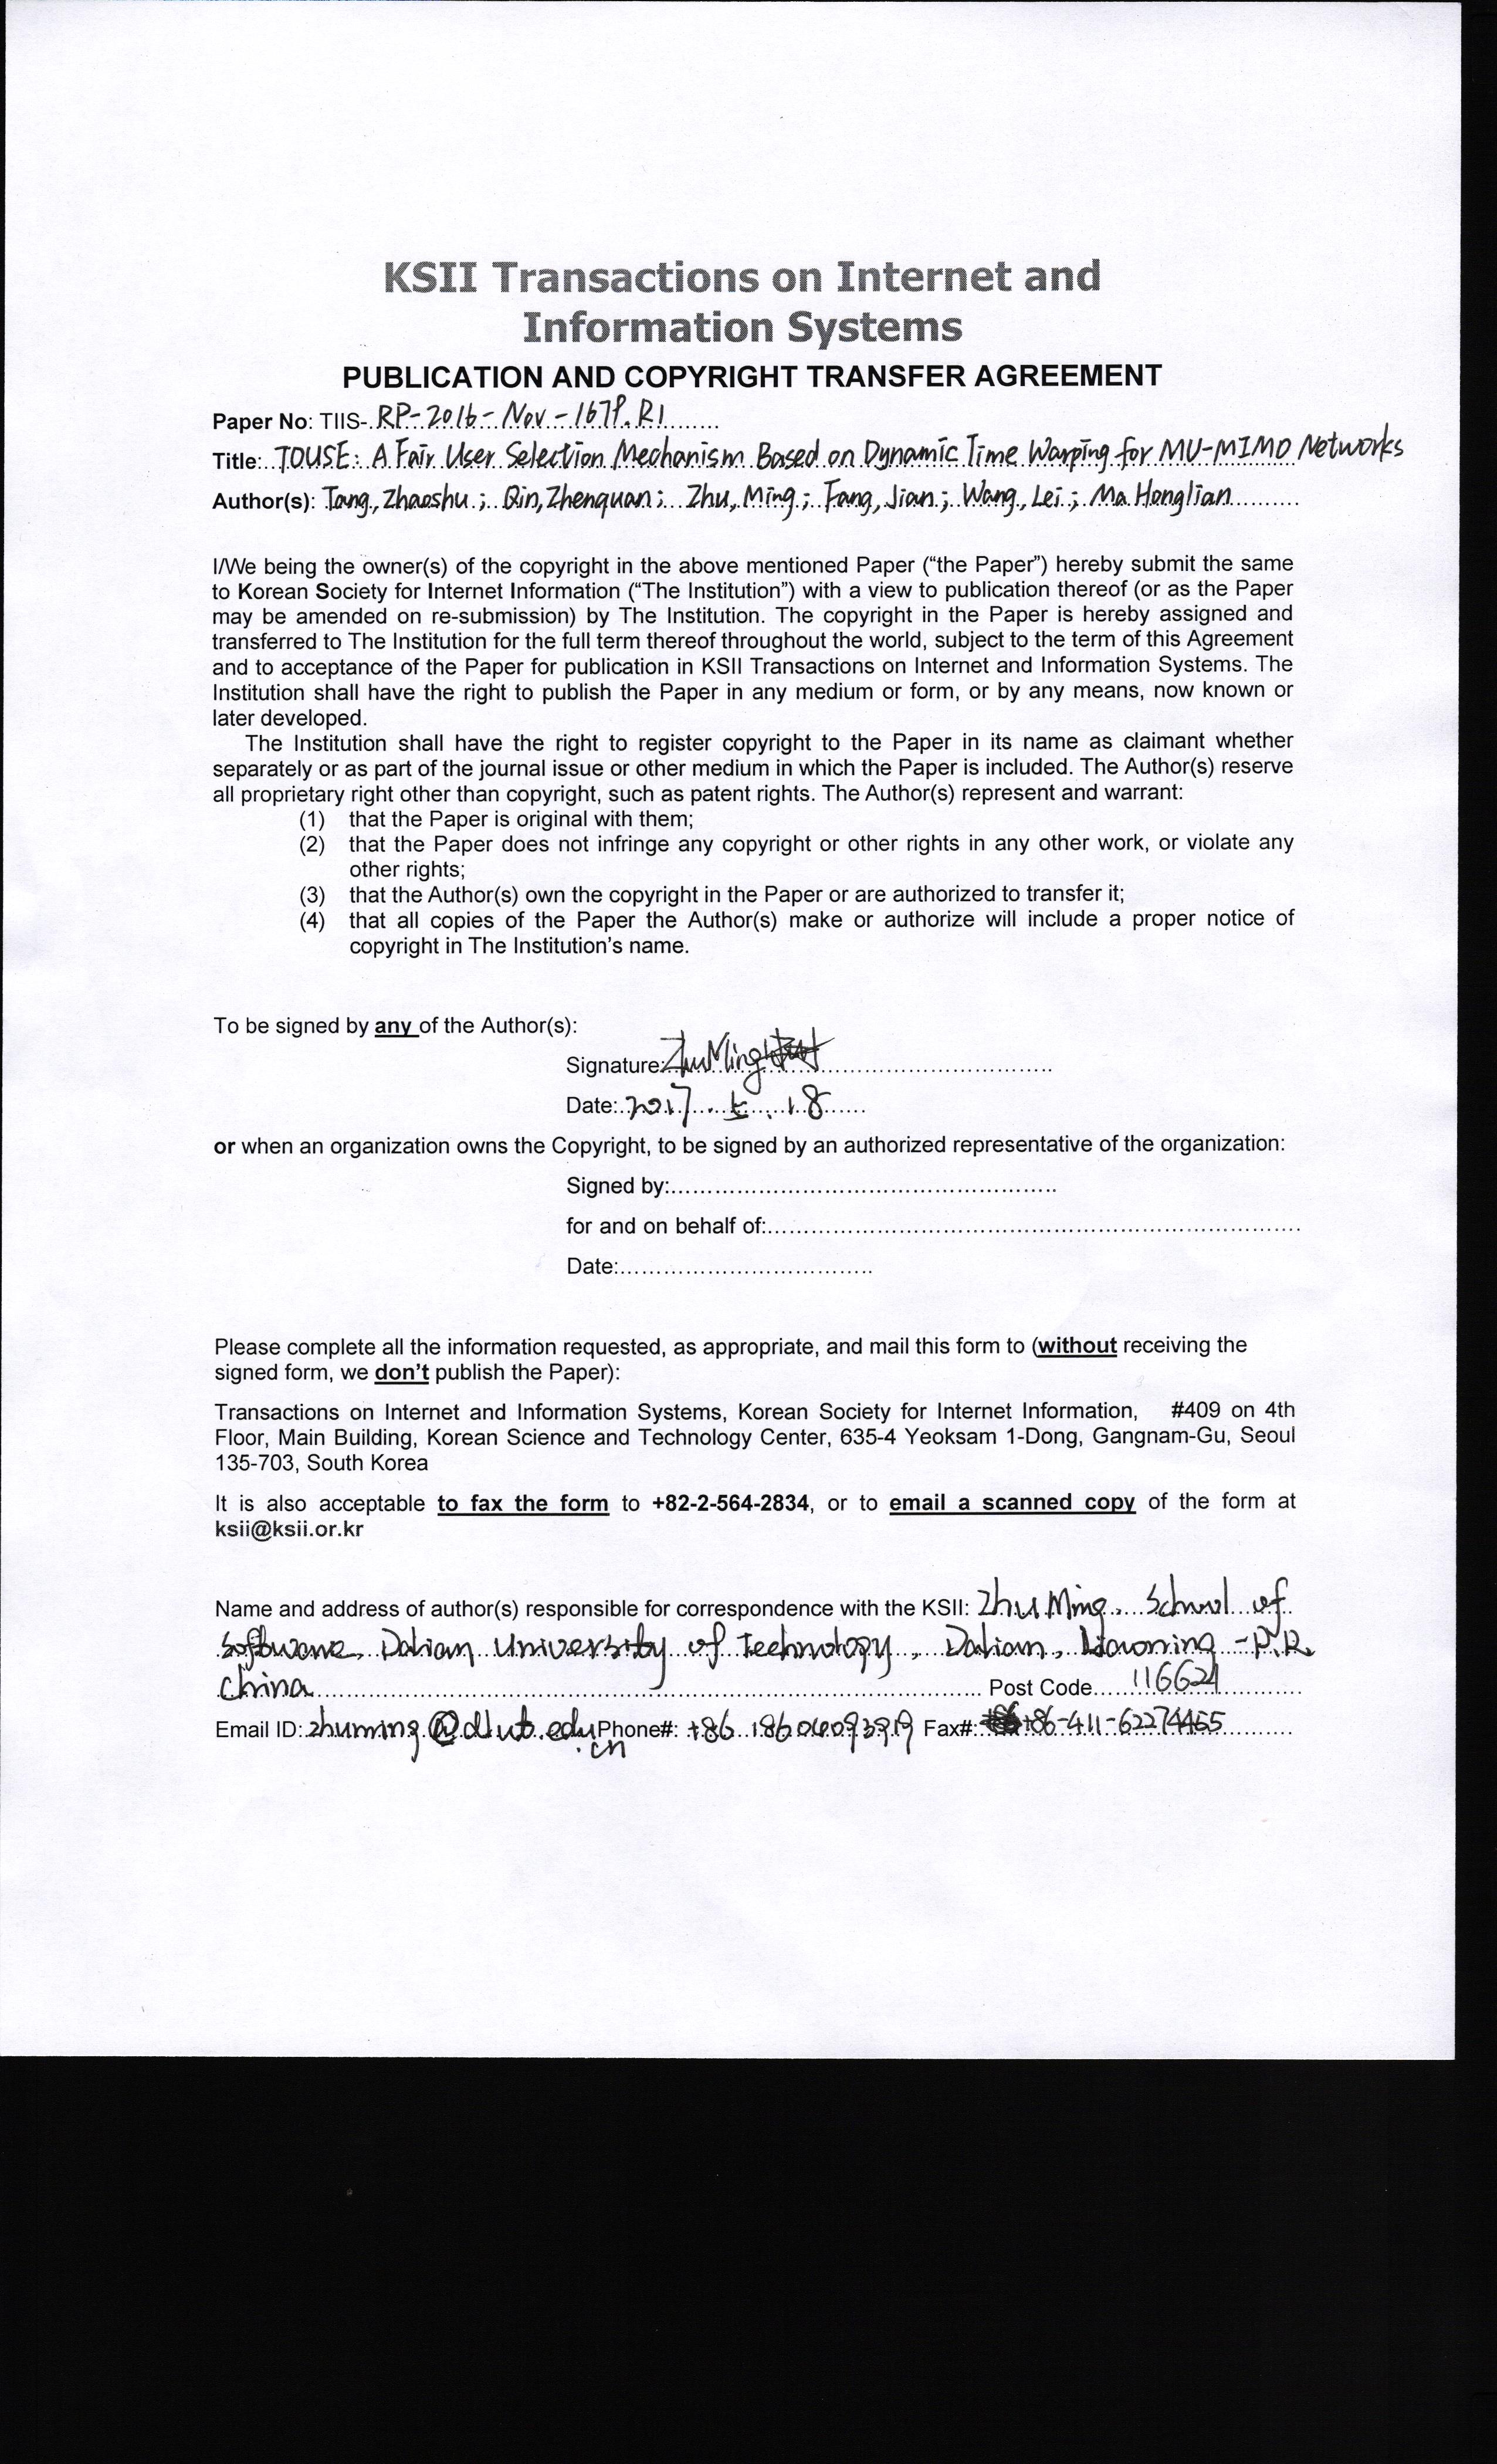 KSII Transactions on Internet and
Information Systems
PUBLICATION AND COPYRIGHT TRANSFER AGREEMENT
Paper No: TIIS- RP-2016-Nov-1679.R1
Title: TOUSE: A Fair User Selection Mechanism Based on Dynamic Time Warping for MU-MIMO Networks
Author(s): Tang, Zhaoshu; Qin, Zhenquan; Zhu, Ming; Fang, Jian; Wang, Lei; Ma Honglian
I/We being the owner(s) of the copyright in the above mentioned Paper (“the Paper”) hereby submit the same
to Korean Society for Internet Information (“The Institution”) with a view to publication thereof (or as the Paper
may be amended on re-submission) by The Institution. The copyright in the Paper is hereby assigned and
transferred to The Institution for the full term thereof throughout the world, subject to the term of this Agreement
and to acceptance of the Paper for publication in KSII Transactions on Internet and Information Systems. The
Institution shall have the right to publish the Paper in any medium or form, or by any means, now known or
later developed.
The Institution shall have the right to register copyright to the Paper in its name as claimant whether
separately or as part of the journal issue or other medium in which the Paper is included. The Author(s) reserve
all proprietary right other than copyright, such as patent rights. The Author(s) represent and warrant:
(1) that the Paper is original with them;
(2) that the Paper does not infringe any copyright or other rights in any other work, or violate any
other rights;
(3) that the Author(s) own the copyright in the Paper or are authorized to transfer it;
(4) that all copies of the Paper the Author(s) make or authorize will include a proper notice of
copyright in The Institution’s name.
To be signed by any of the Author(s):
Signature: Zhu Ming
Date: 2017. 18
or when an organization owns the Copyright, to be signed by an authorized representative of the organization:
Signed by:
for and on behalf of:
Date:
Please complete all the information requested, as appropriate, and mail this form to (without receiving the
signed form, we don’t publish the Paper):
Transactions on Internet and Information Systems, Korean Society for Internet Information, #409 on 4th
Floor, Main Building, Korean Science and Technology Center, 635-4 Yeoksam 1-Dong, Gangnam-Gu, Seoul
135-703, South Korea
It is also acceptable to fax the form to +82-2-564-2834, or to email a scanned copy of the form at
ksii@ksii.or.kr
Name and address of author(s) responsible for correspondence with the KSII: Zhu Ming, School of
Software, Dalian University of Technology, Dalian, Liaoning - P.R.
China Post Code 116621
Email ID: zhuming@dlut.edu.cn Phone#: +86 18604093919 Fax#: +86-411-62274455